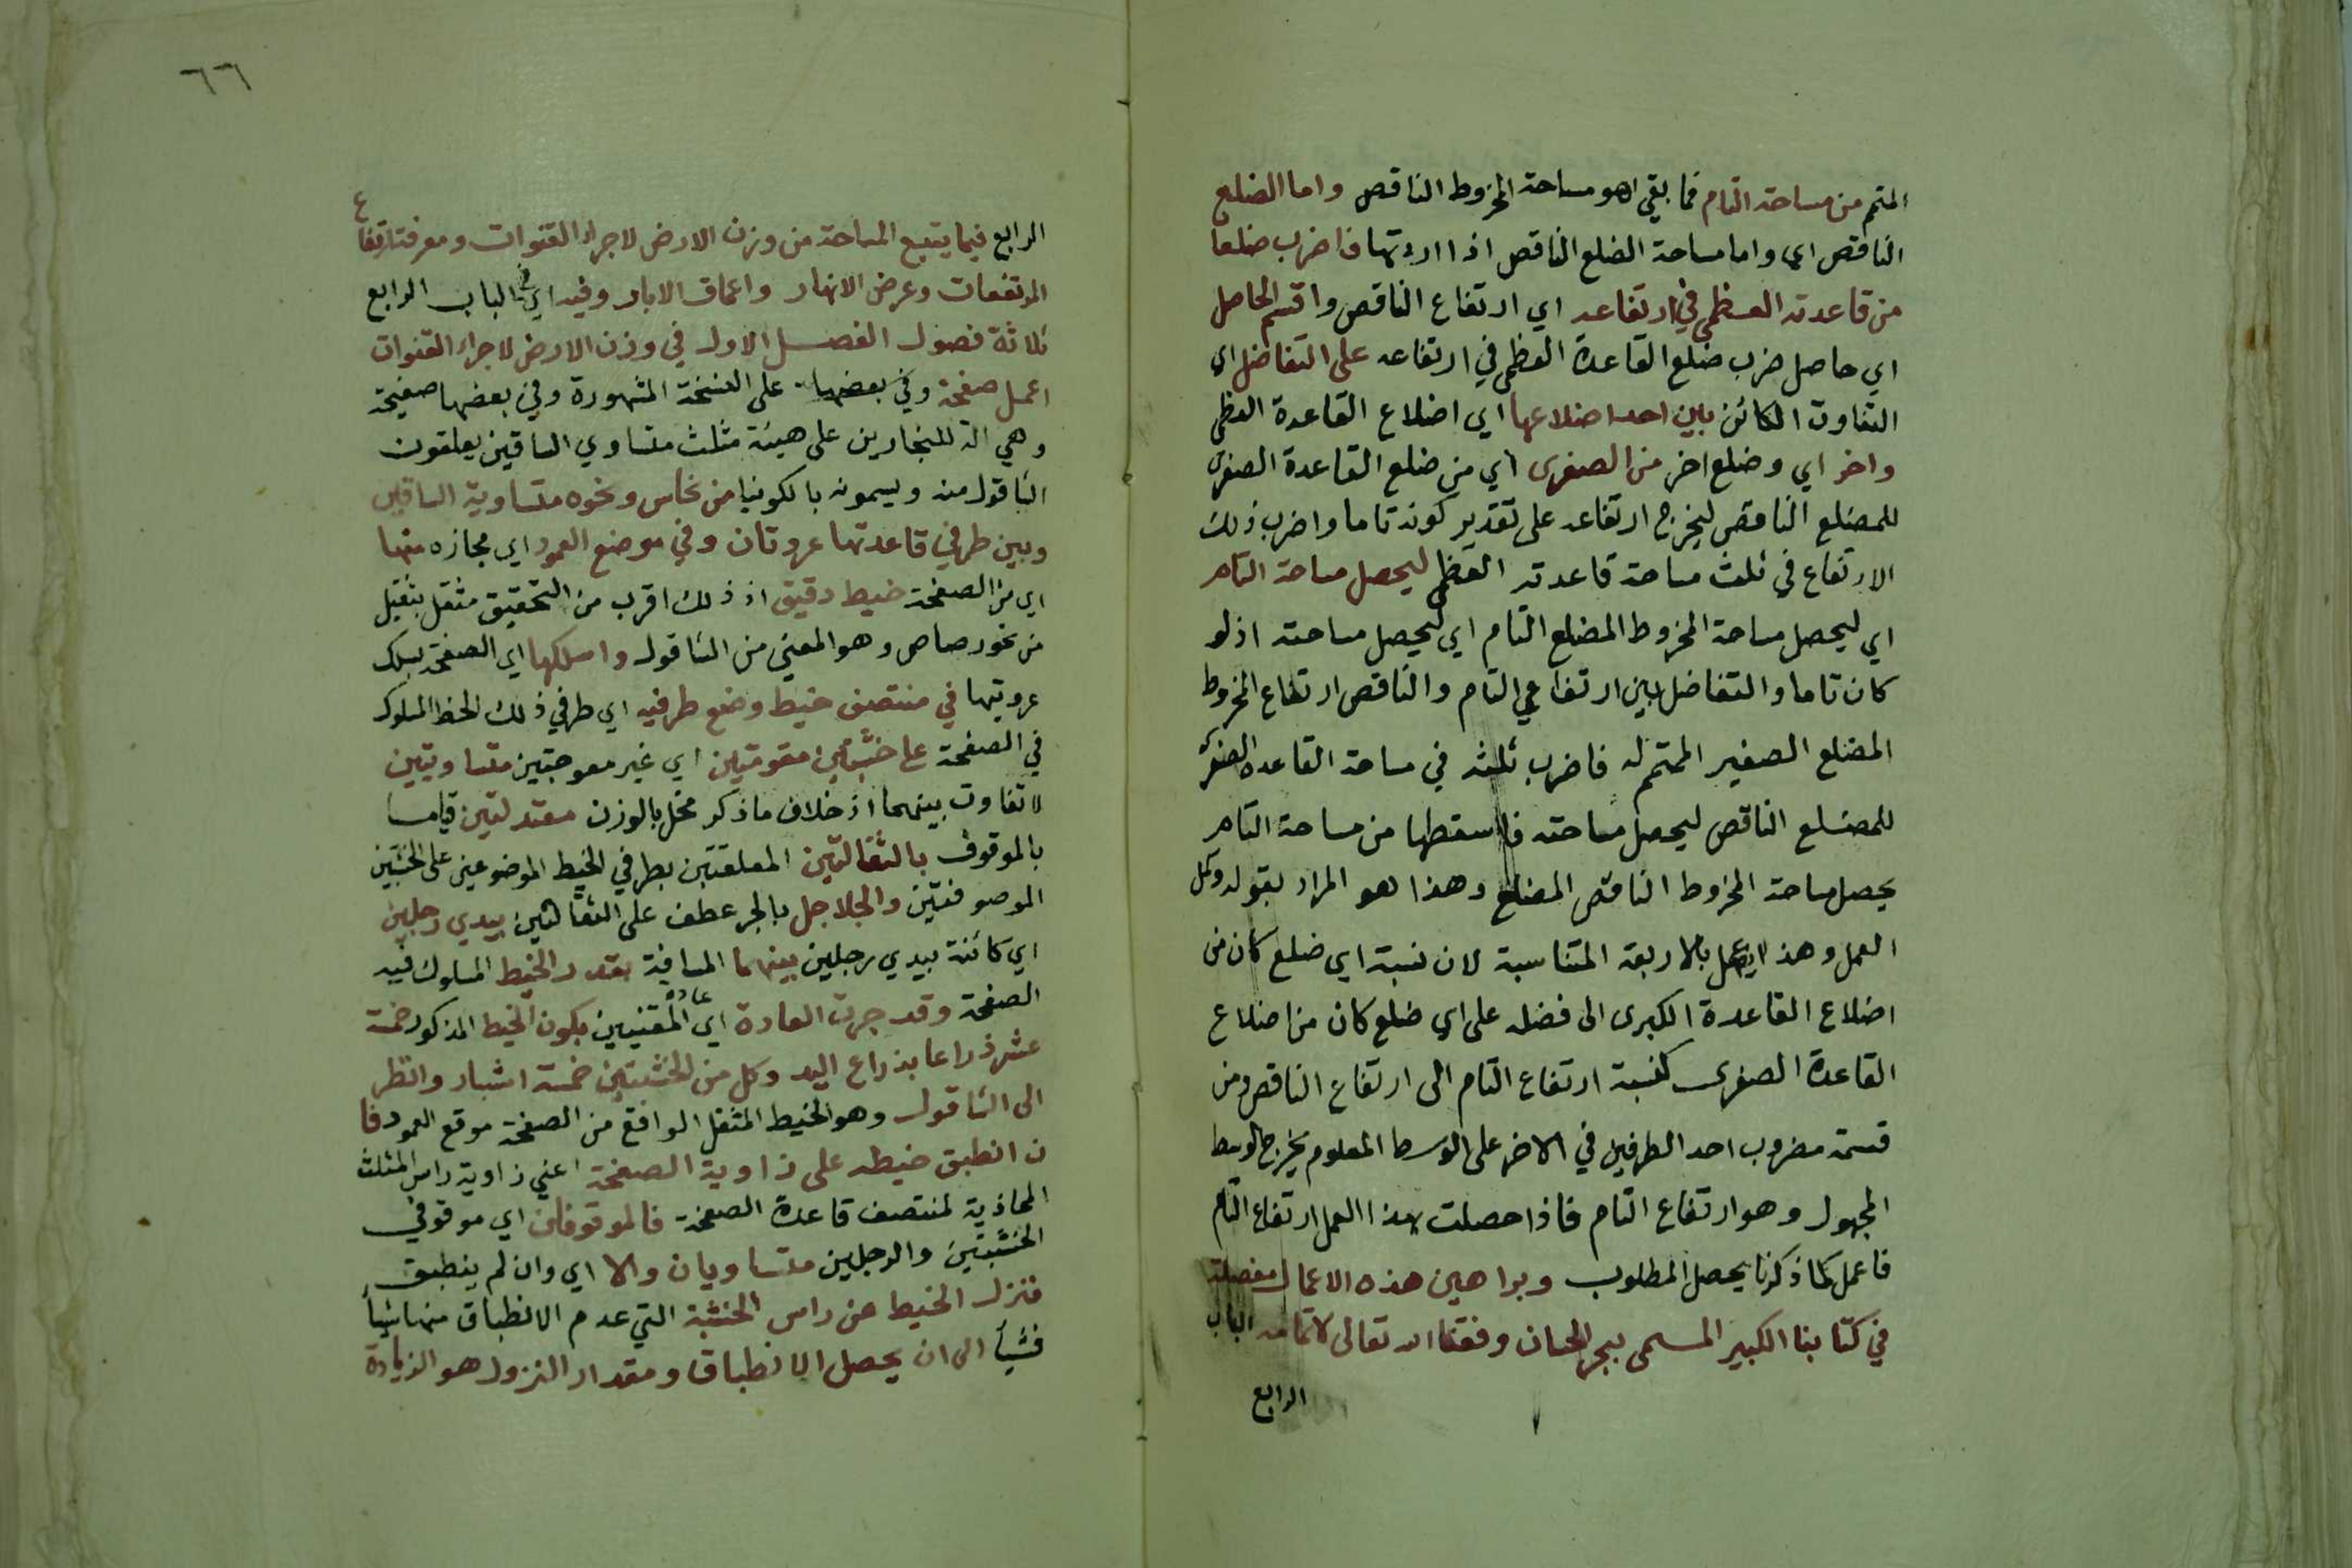 المتمم من مساحة التام فما بقي اهو مساحة المخروط الناقص واما الضلع
الناقص اي واما مساحة الضلع الناقص اذا اردتها فاضرب ضلعا
من قاعدته العظمى في ارتفاعه اي ارتفاع الناقص واقسم الحاصل
اي حاصل ضرب ضلع القاعدة العظمى في ارتفاعه على التفاضل اي
التفاوت الكائن بين احد اضلاعها اي اضلاع القاعدة العظمى
واخر اي وضلع اخر من الصغرى اي من ضلع القاعدة الصغرى
للمضلع الناقص ليخرج ارتفاعه على تقدير كونه تاما واضرب ذلك
الارتفاع في ثلث مساحة قاعدته العظمى ليحصل مساحة التام
اي ليحصل مساحة المخروط المضلع التام اي ليحصل مساحته اذ لو
كان تاما والتفاضل بين ارتفاعي التام والناقص ارتفاع المخروط
المضلع الصغير المتمم له فاضرب ثلثه في مساحة القاعدة الصغرى
للمضلع الناقص ليحصل مساحته فاسقطها من مساحة التام
يحصل مساحة المخروط الناقص المضلع وهذا هو المراد بقوله وكل
العمل وهذا العمل بالاربعة المتناسبة لان نسبة اي ضلع كان من
اضلاع القاعدة الكبرى الى فضله على اي ضلع كان من اضلاع
القاعدة الصغرى كنسبة ارتفاع التام الى ارتفاع الناقص ومن
قسمة مضروب احد الطرفين في الاخر على الوسط المعلوم يخرج الوسط
المجهول وهو ارتفاع التام فاذا حصلت بهذا العمل ارتفاع التام
فاعمل كما ذكرنا يحصل المطلوب وبراهين هذه الاعمال مفصلة
في كتابنا الكبير المسمى ببحر الحساب وفقنا الله تعالى لاتمامه الباب
الرابع
٦٦
الرابع فيما يتبع المساحة من وزن الارض لاجراء القنوات ومعرفة ارتفاع
المرتفعات وعرض الانهار واعماق الابار وفيه اي في الباب الرابع
ثلاثة فصول الفصل الاول في وزن الارض لاجراء القنوات
اعمل صفحة وفي بعضها على النسخة المشهورة وفي بعضها صفيحة
وهي الة للنجارين على هيئة مثلث متساوي الساقين يعلقون
الثاقول منه ويسمونه بالكونيا من نحاس ونحوه متساوية الساقين
وبين طرفي قاعدتها عروتان وفي موضع العمود اي مجازه منها
اي من الصفحة خيط دقيق اذ ذلك اقرب من التحقيق مثقل بثقيل
من نحو رصاص وهو المعني من الثاقول واسلكها اي الصفحة بسلك
عروتيها في منتصف خيط وضع طرفيه اي طرفي ذلك الخيط المسلوك
في الصفحة على خشبتين مقومتين اي غير معوجتين متساويتين
لا تفاوت بينهما اذ خلاف ما ذكر مخل بالوزن معتدلتين قياسا
بالموقوف بالثقالتين المعلقتين بطرفي الخيط الموضوعين على الخشبتين
الموصوفتين والجلاجل بالجر عطف على الثقالتين بيدي رجلين
اي كائنة بيدي رجلين بينهما المسافة بقدر الخيط المسلوك فيه
الصفحة وقد جرت العادة اي عادة المقنيين بكون الخيط المذكور خمسة
عشر ذراعا بذراع اليد وكل من الخشبتين خمسة اشبار وانظر
الى الثاقول وهو الخيط المثقل الواقع من الصفحة موقع العمود فا
ن انطبق خيطه على زاوية الصفحة اعني زاوية راس المثلث
المحاذية لمنتصف قاعدة الصفحة فالموقوفان اي موقوفي
الخشبتين والرجلين متساويان والا اي وان لم ينطبق
فنزل الخيط عن راس الخشبة التي عدم الانطباق منها شيأ
فشيأ الى ان يحصل الانطباق ومقدار النزول هو الزيادة